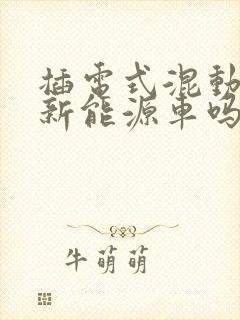 插電式混動
新能源車吗
牛萌萌